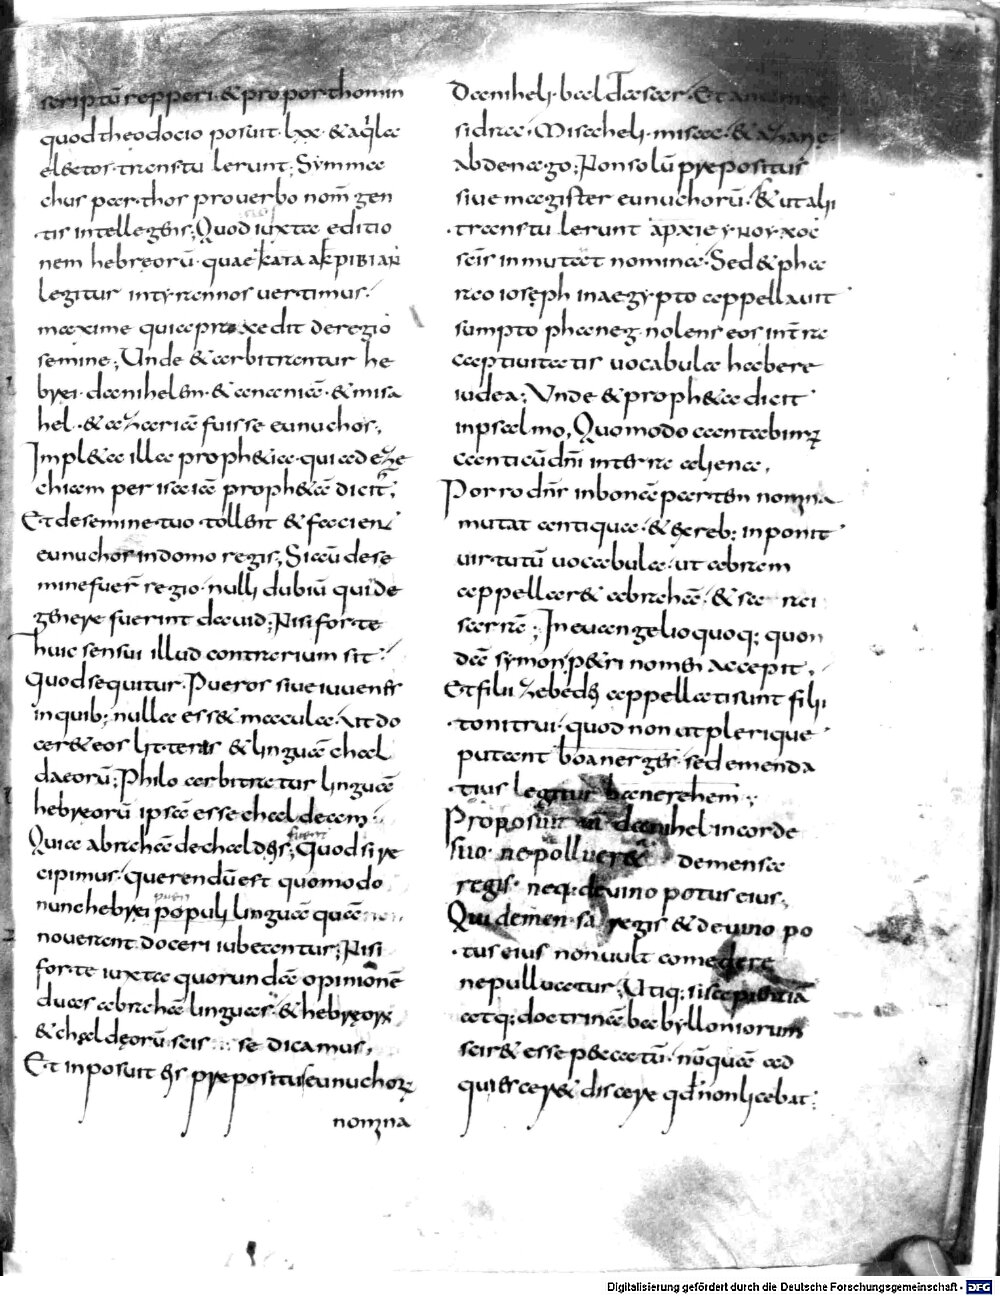 scriptū repperi · & pro porthomin
quod theodocio posuit · lxx · & aq̄la
electos · transtulerunt; Symma
chus parthos pro verbo nom̄ gen
tis intellegens; Quod iuxta editio
nem hebręorū · quae ΚΑΤΑ ΑΚΡΙΒΙΑΝ
legitur in tyrannos vertimus ·
maxime quia praecedit de regio
semine; Unde & arbitrantur he
brei · danihelem · & ananiā · & misa
hel · & azariā fuisse eunuchos,
Impl&a illa proph&ia · qui ad eze
chiam per isaiā proph&ā dicit̄,
Et de semine tuo toll&nt & facien
eunuchos in domo regis; Si aū de se
mine fuer̄ regio · nulli dubiū qui de
genere fuerint dauid; Nisi forte
huic sensui illud contrarium sit ·
quod sequitur · Pueros siue iuuenes
in quib; nulla ess& macula · Ut do
cer& eos litteras & linguā chal
daeorū; Philo arbitratur linguā
hebreorū ipsā esse chaldeam ·
Quia abrahā de chaldęis fuerit; Quod si re
cipimus · querendū est quomodo
nunc hebrei populi linguā quā
nouerant doceri iubeantur; Nisi
forte iuxta quorundā opinionē
duas abrahā linguas · & hebreorū
& chaldęorū scisse dicamus,
Et inposuit eis prepositus eunuchorū
nomina
Danihel · baldasar · Et ananiae
sidrac · Misaheli · misac · & azarię
abdenago; Non solū prepositus
siue magister eunuchorū · & ut alii
transtulerunt ΑΡΧΙΕΥΝΟΥΧΟС
scīs inmutat nomina · Sed & pha
rao ioseph in aegypto appellauit
sumpto phaneg · nolens eos in terra
captiuitatis uocabula habere
iudea; Unde & proph&a dicit
in psalmo, Quomodo cantabimus
canticū dn̄i in terra aliena,
Porro dn̄s in bonā partem nomina
mutat antiqua · & ex reb; inponit
uirtutū uocabula · ut abram
appellar& abrahā · & sarai
sarra; In euangelio quoq; quon
dā symon p&ri nomen accepit,
Et filii zebedei appellati sunt filii
tonitrui · quod non ut plerique
putant boanerges · sed emenda
tius legitur banerehem;
Proposuit au danihel in corde
suo · ne polluer& de mensa
regis · neq; de uino potus eius,
Qui de mensa regis & de uino po
tus eius non uult comedere
ne polluatur; Utiq; si sapientiā
atq; doctrinā babylloniorum
scir& esse peccatū · nūquā ad
quiescer& discere qd̄ non licebat:
Digitalisierung gefördert durch die Deutsche Forschungsgemeinschaft - DFG